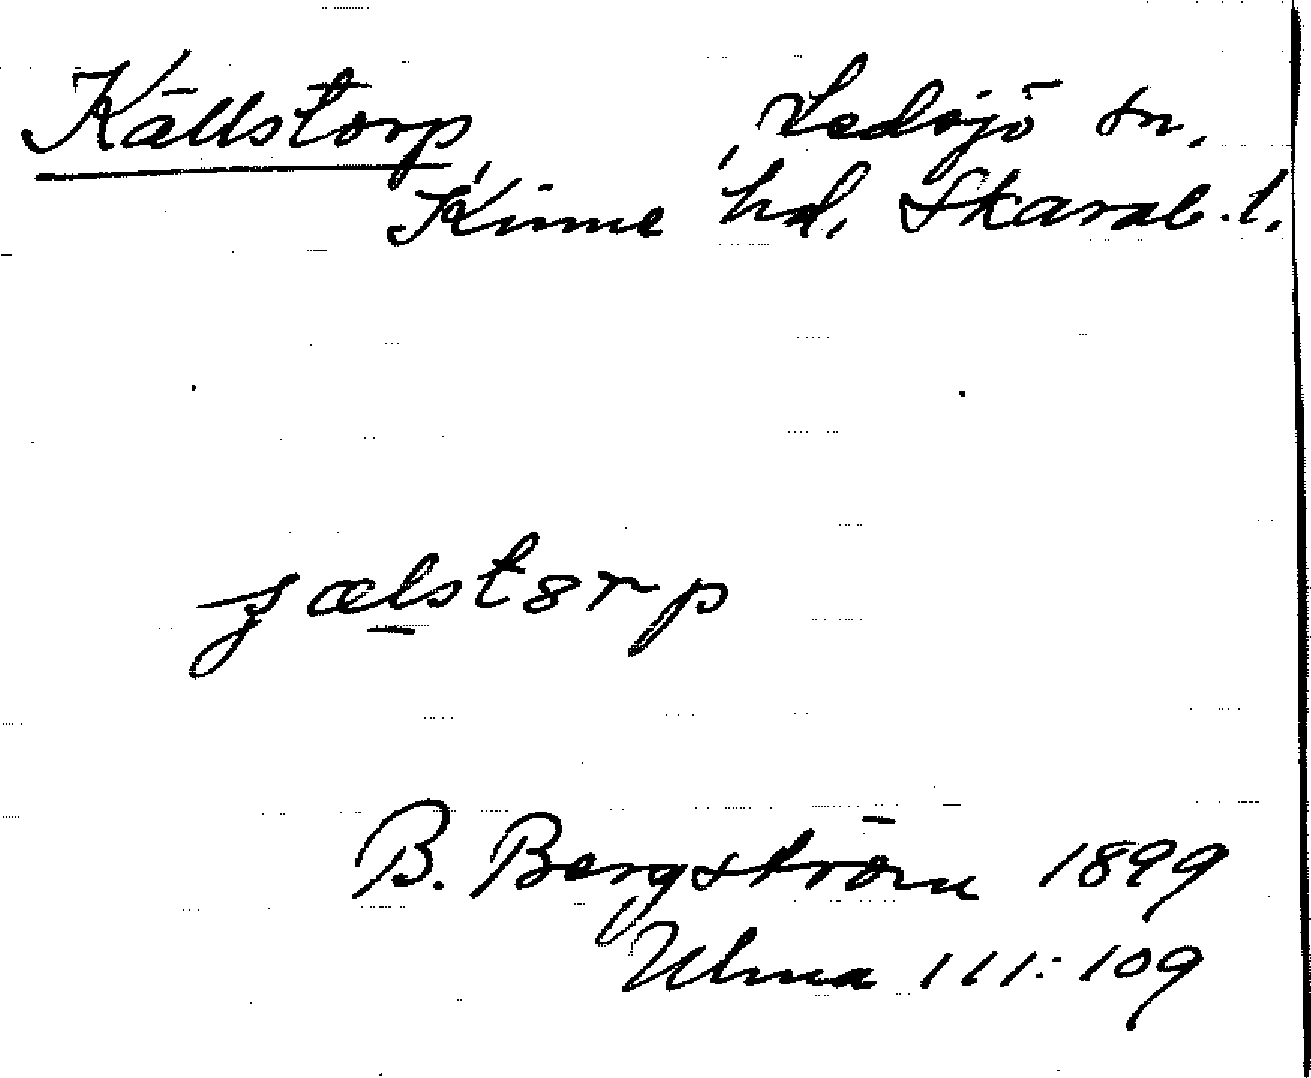 Källstorp, Ledsjö sn.,
Kinne hd, Skarab. l.
B. Bergström 1899
Ulma 111:109